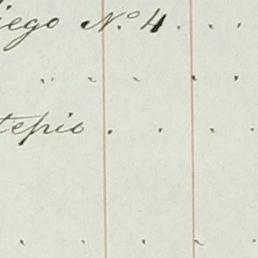 iego Nº 4 . . .
. . . . .
tepio . . . .
. . . . .